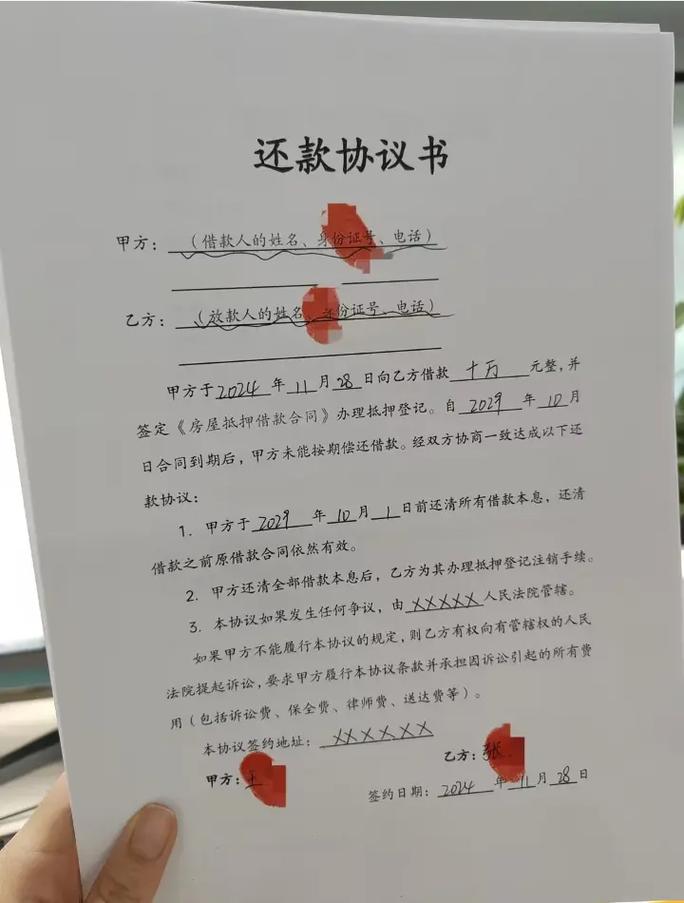 还款协议书
甲方：（借款人的姓名、身份证号、电话）
乙方：（放款人的姓名、身份证号、电话）
甲方于2024年11月28日向乙方借款十万元整，并
签定《房屋抵押借款合同》办理抵押登记。自2029年10月
日合同到期后，甲方未能按期偿还借款。经双方协商一致达成以下还
款协议：
1. 甲方于2029年10月1日前还清所有借款本息，还清
借款之前原借款合同依然有效。
2. 甲方还清全部借款本息后，乙方为其办理抵押登记注销手续。
3. 本协议如果发生任何争议，由XXXXX人民法院管辖。
如果甲方不能履行本协议的规定，则乙方有权向有管辖权的人民
法院提起诉讼，要求甲方履行本协议条款并承担因诉讼引起的所有费
用（包括诉讼费、保全费、律师费、送达费等）。
本协议签约地址：XXXXXX
甲方：王
乙方：张
签约日期：2024年11月28日